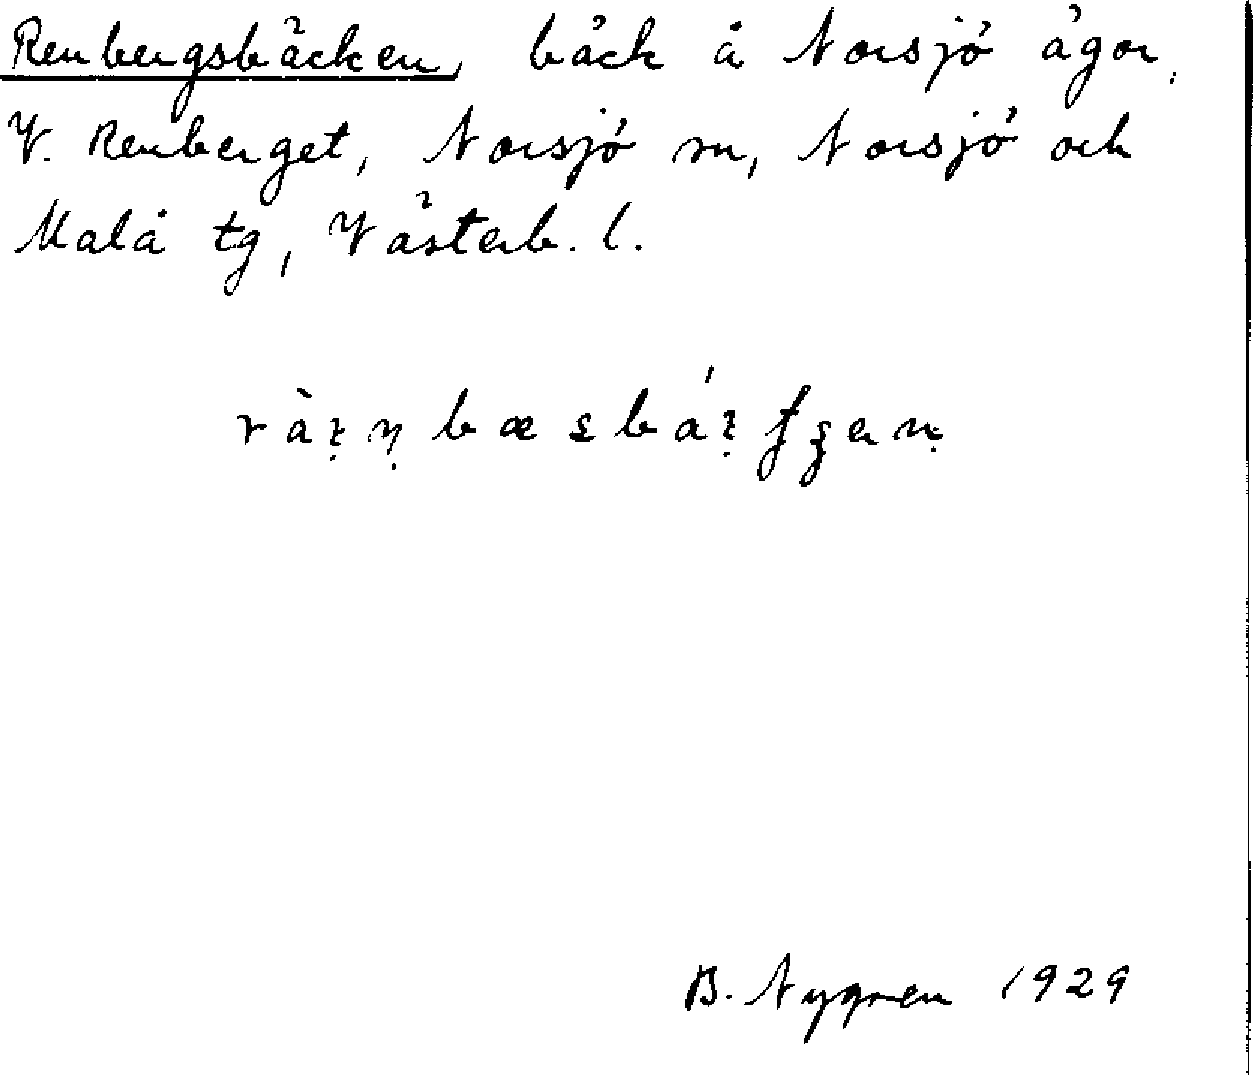 Renbergsbäcken, bäck å Norsjö ägor,
V. Renberget, Norsjö sn, Norsjö och
Malå tg, Västerb. l.
B. Nygren 1929